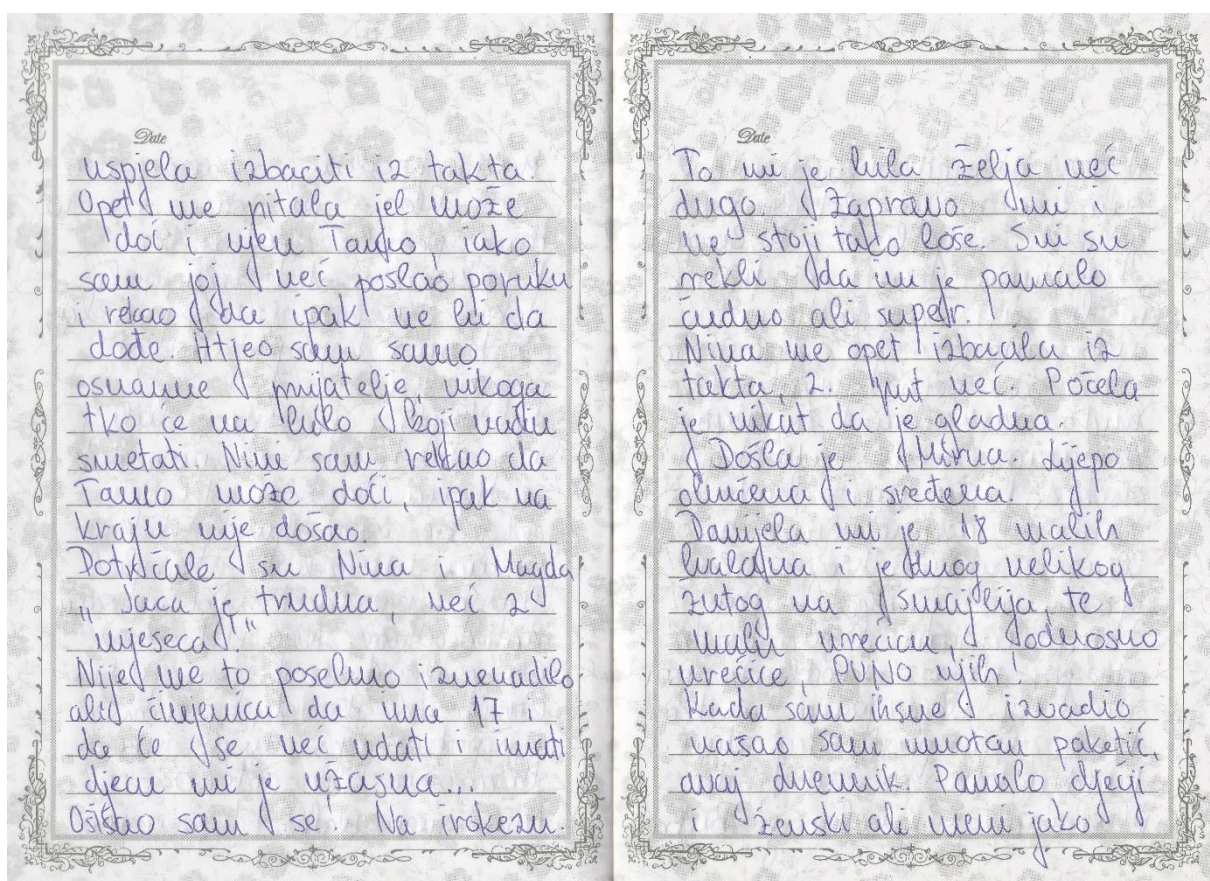 Date
uspjela izbaciti iz takta.
Opet me pitala jel može
doć i njen Tamo, iako
sam joj već poslao poruku
i rekao da ipak ne bi da
dođe. Htjeo sam samo
osnovne prijatelje, nikoga
tko će na bilo koji način
smetati. Nini sam rekao da
Tamo može doći, ipak na
kraju nije došao.
Potrčale su Nina i Magda
„Jaca je trudna, već 2
mjeseca!"
Nije me to posebno iznenadilo
ali činjenica da ima 17 i
da će se već udati i imati
djecu mi je užasna...
Ošišao sam se. Na irokezu.
Date
To mi je bila želja već
dugo. Zapravo mi i
ne stoji tako loše. Svi su
rekli da im je pomalo
čudno ali super.
Nina me opet izbacila iz
takta, 2. put već. Počela
je vikat da je gladna.
Došla je Mirna. Lijepo
obučena i sređena.
Danijela mi je 18 malih
balona i jednog velikog
žutog na smajlija, te
malu vrećicu, odnosno
vrećice, PUNO njih!
Kada sam ih sve izvadio
našao sam umotan paketić,
ovaj dnevnik. Pomalo dječji
i ženski ali meni jako